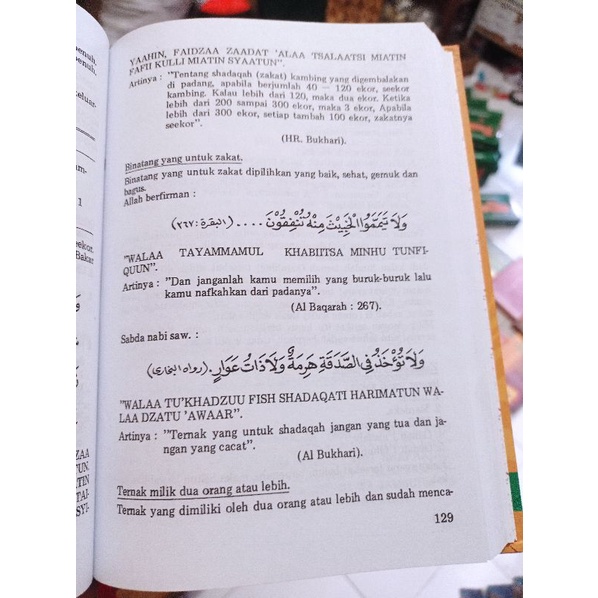 YAAHIN, FAIDZAA ZAADAT 'ALAA TSALAATSI MIATIN
FAFII KULLI MIATIN SYAATUN".
Artinya : "Tentang shadaqah (zakat) kambing yang digembalakan
di padang, apabila berjumlah 40 — 120 ekor, seekor
kambing. Kalau lebih dari 120, maka dua ekor. Ketika
lebih dari 200 sampai 300 ekor, maka 3 ekor, Apabila
lebih dari 300 ekor, setiap tambah 100 ekor, zakatnya
seekor".
(HR. Bukhari).
Binatang yang untuk zakat.
Binatang yang untuk zakat dipilihkan yang baik, sehat, gemuk dan
bagus.
Allah berfirman :
وَلَا تَيَمَّمُوا الْخَبِيْثَ مِنْهُ تُنْفِقُوْنَ .... (البقرة : ٢٦٧)
"WALAA TAYAMMAMUL KHABIITSA MINHU TUNFI-
QUUN".
Artinya : "Dan janganlah kamu memilih yang buruk-buruk lalu
kamu nafkahkan dari padanya".
(Al Baqarah : 267).
Sabda nabi saw. :
وَلَا تُؤْخَذُ فِي الصَّدَقَةِ هَرِمَةٌ وَلَا ذَاتُ عَوَارٍ. (رواه البخاري)
"WALAA TU'KHADZUU FISH SHADAQATI HARIMATUN WA-
LAA DZATU 'AWAAR".
Artinya : "Ternak yang untuk shadaqah jangan yang tua dan ja-
ngan yang cacat".
(Al Bukhari).
Ternak milik dua orang atau lebih.
Ternak yang dimiliki oleh dua orang atau lebih dan sudah menca-
129